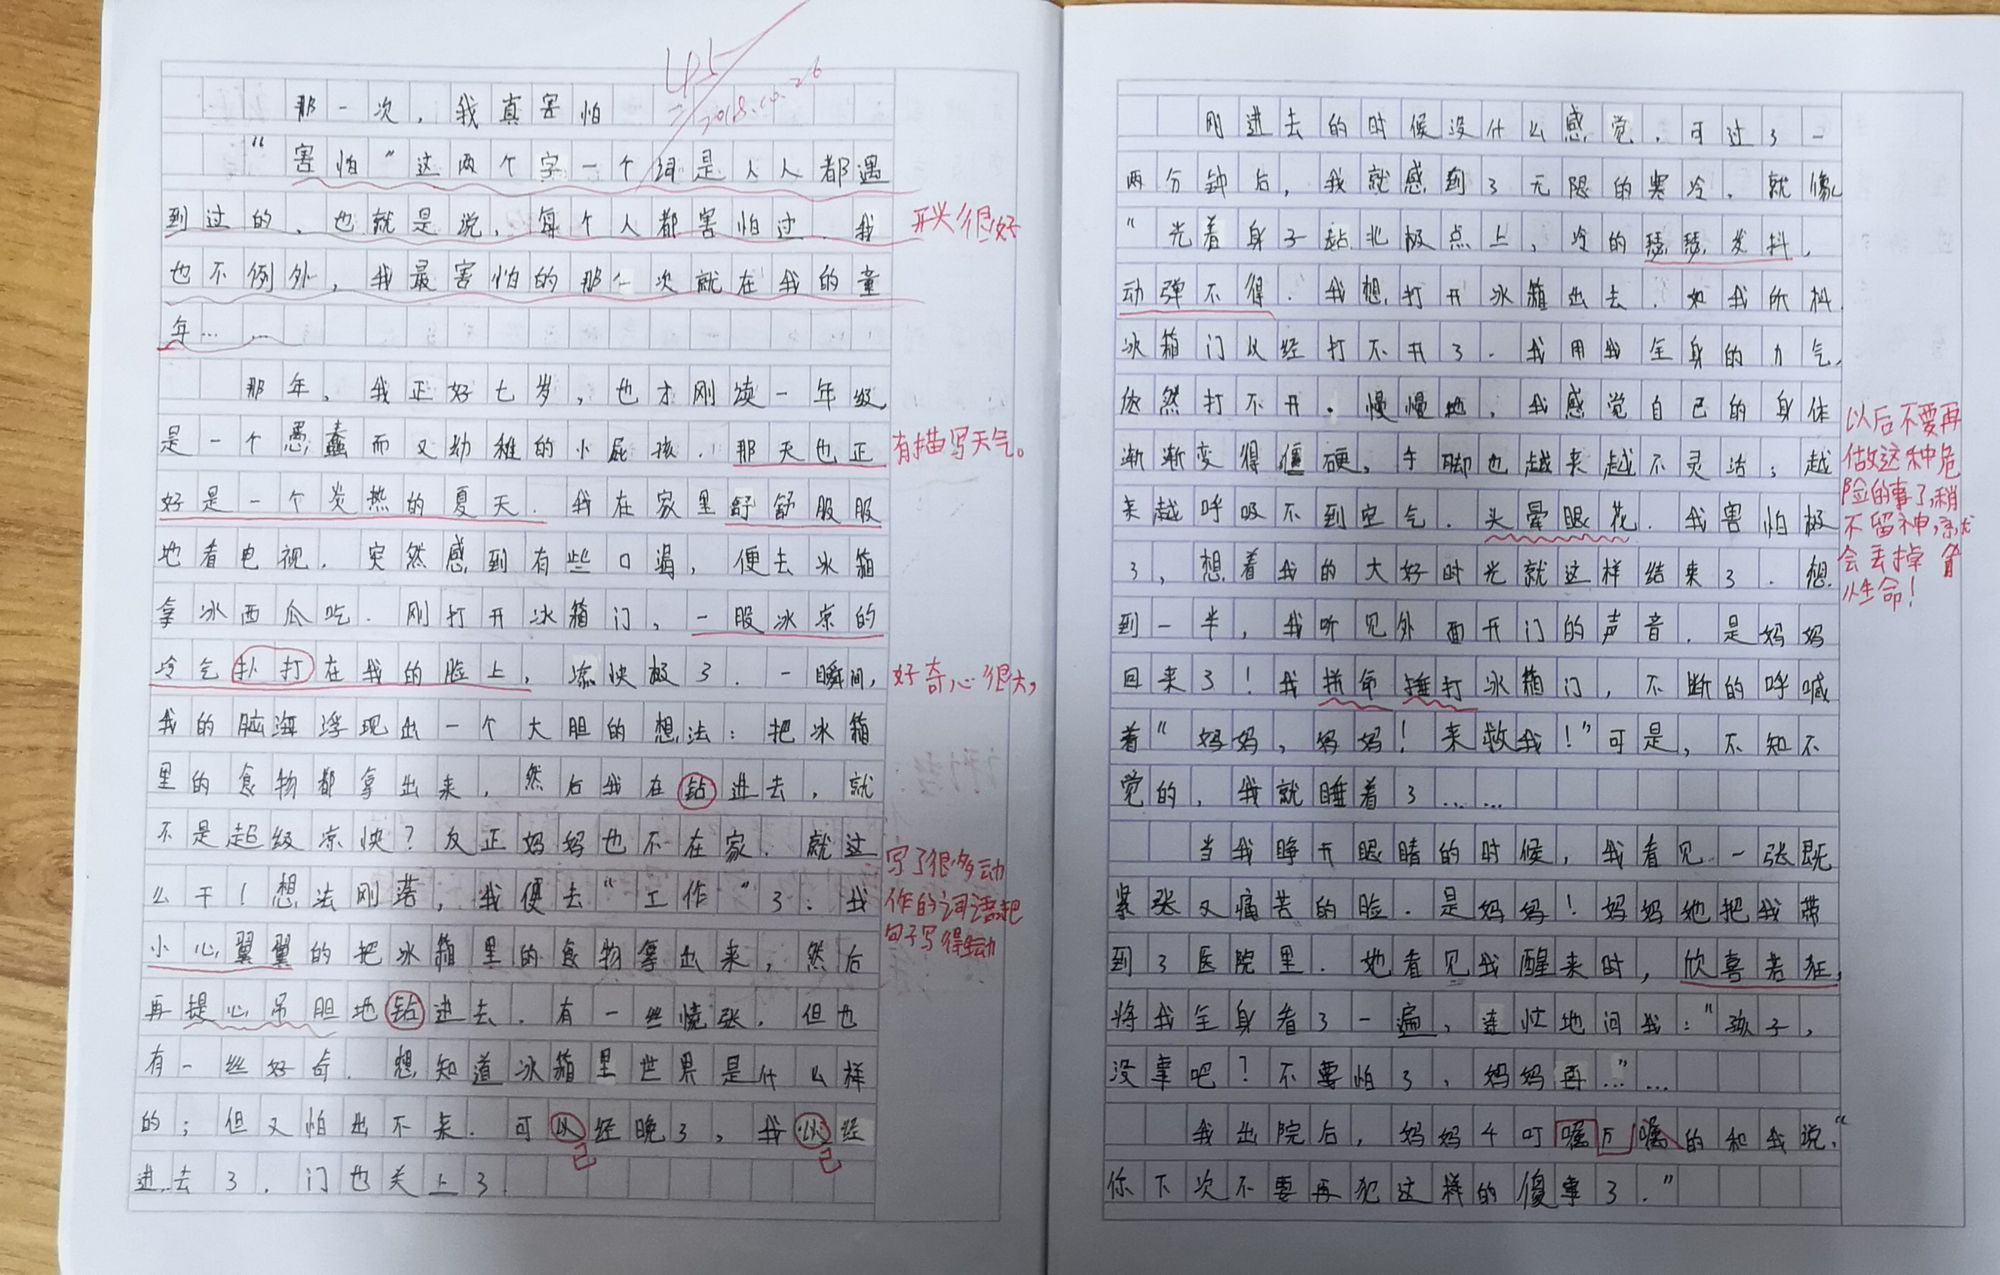 那一次，我真害怕
45
2018.10.26
“害怕”这两个字一个词是人人都遇
到过的，也就是说，每个人都害怕过．我
开头很好
也不例外，我最害怕的那一次就在我的童
年……
那年，我正好七岁，也才刚读一年级，
是一个愚蠢而又幼稚的小屁孩．那天也正
有描写天气。
好是一个炎热的夏天．我在家里舒舒服服
地看电视．突然感到有些口渴，便去冰箱
拿冰西瓜吃．刚打开冰箱门，一股冰凉的
冷气扑打在我的脸上，凉快极了．一瞬间，
好奇心很大，
我的脑海浮现出一个大胆的想法：把冰箱
里的食物都拿出来，然后我在钻进去，就
不是超级凉快？反正妈妈也不在家．就这
么干！想法刚落，我便去“工作”了：我
写了很多动
作的词语把
句子写得生动
小心翼翼的把冰箱里的食物拿出来，然后
再提心吊胆地钻进去．有一丝慌张．但也
有一丝好奇．想知道冰箱里世界是什么样
的；但又怕出不来．可以经晚了，我以经
已
已
进去了．门也关上了．
刚进去的时候没什么感觉，可过了一
两分钟后，我就感到了无限的寒冷．就像
“光着身子站北极点上，冷的瑟瑟发抖，
动弹不得．我想打开冰箱出去．如我所料，
冰箱门以经打不开了．我用我全身的力气，
依然打不开．慢慢地，我感觉自己的身体
渐渐变得僵硬，手脚也越来越不灵活；越
来越呼吸不到空气．头晕眼花．我害怕极
了，想着我的大好时光就这样结束了．想
到一半，我听见外面开门的声音．是妈妈
回来了！我拼命捶打冰箱门，不断的呼喊
着“妈妈，妈妈！来救我！”可是，不知不
觉的，我就睡着了……
以后不要再
做这种危
险的事了，稍
不留神，就
会丢掉
性命！
当我睁开眼睛的时候，我看见一张既
紧张又痛苦的脸．是妈妈！妈妈她把我带
到了医院里．她看见我醒来时，欣喜若狂，
将我全身看了一遍，连忙地问我：“孩子，
没事吧？不要怕了，妈妈再…”…
我出院后，妈妈千叮嘱万嘱的和我说：“
你下次不要再犯这样的傻事了．”